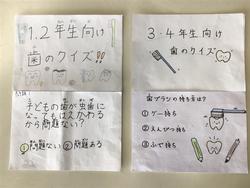 1.2年生向け
歯のクイズ!!
問題1
子どもの歯が虫歯に
なってもはえかわる
から問題ない?
①問題ない ②問題ある
3・4年生向け
歯のクイズ
歯ブラシの持ち方は?
①グー持ち
②えんぴつ持ち
③ふで持ち